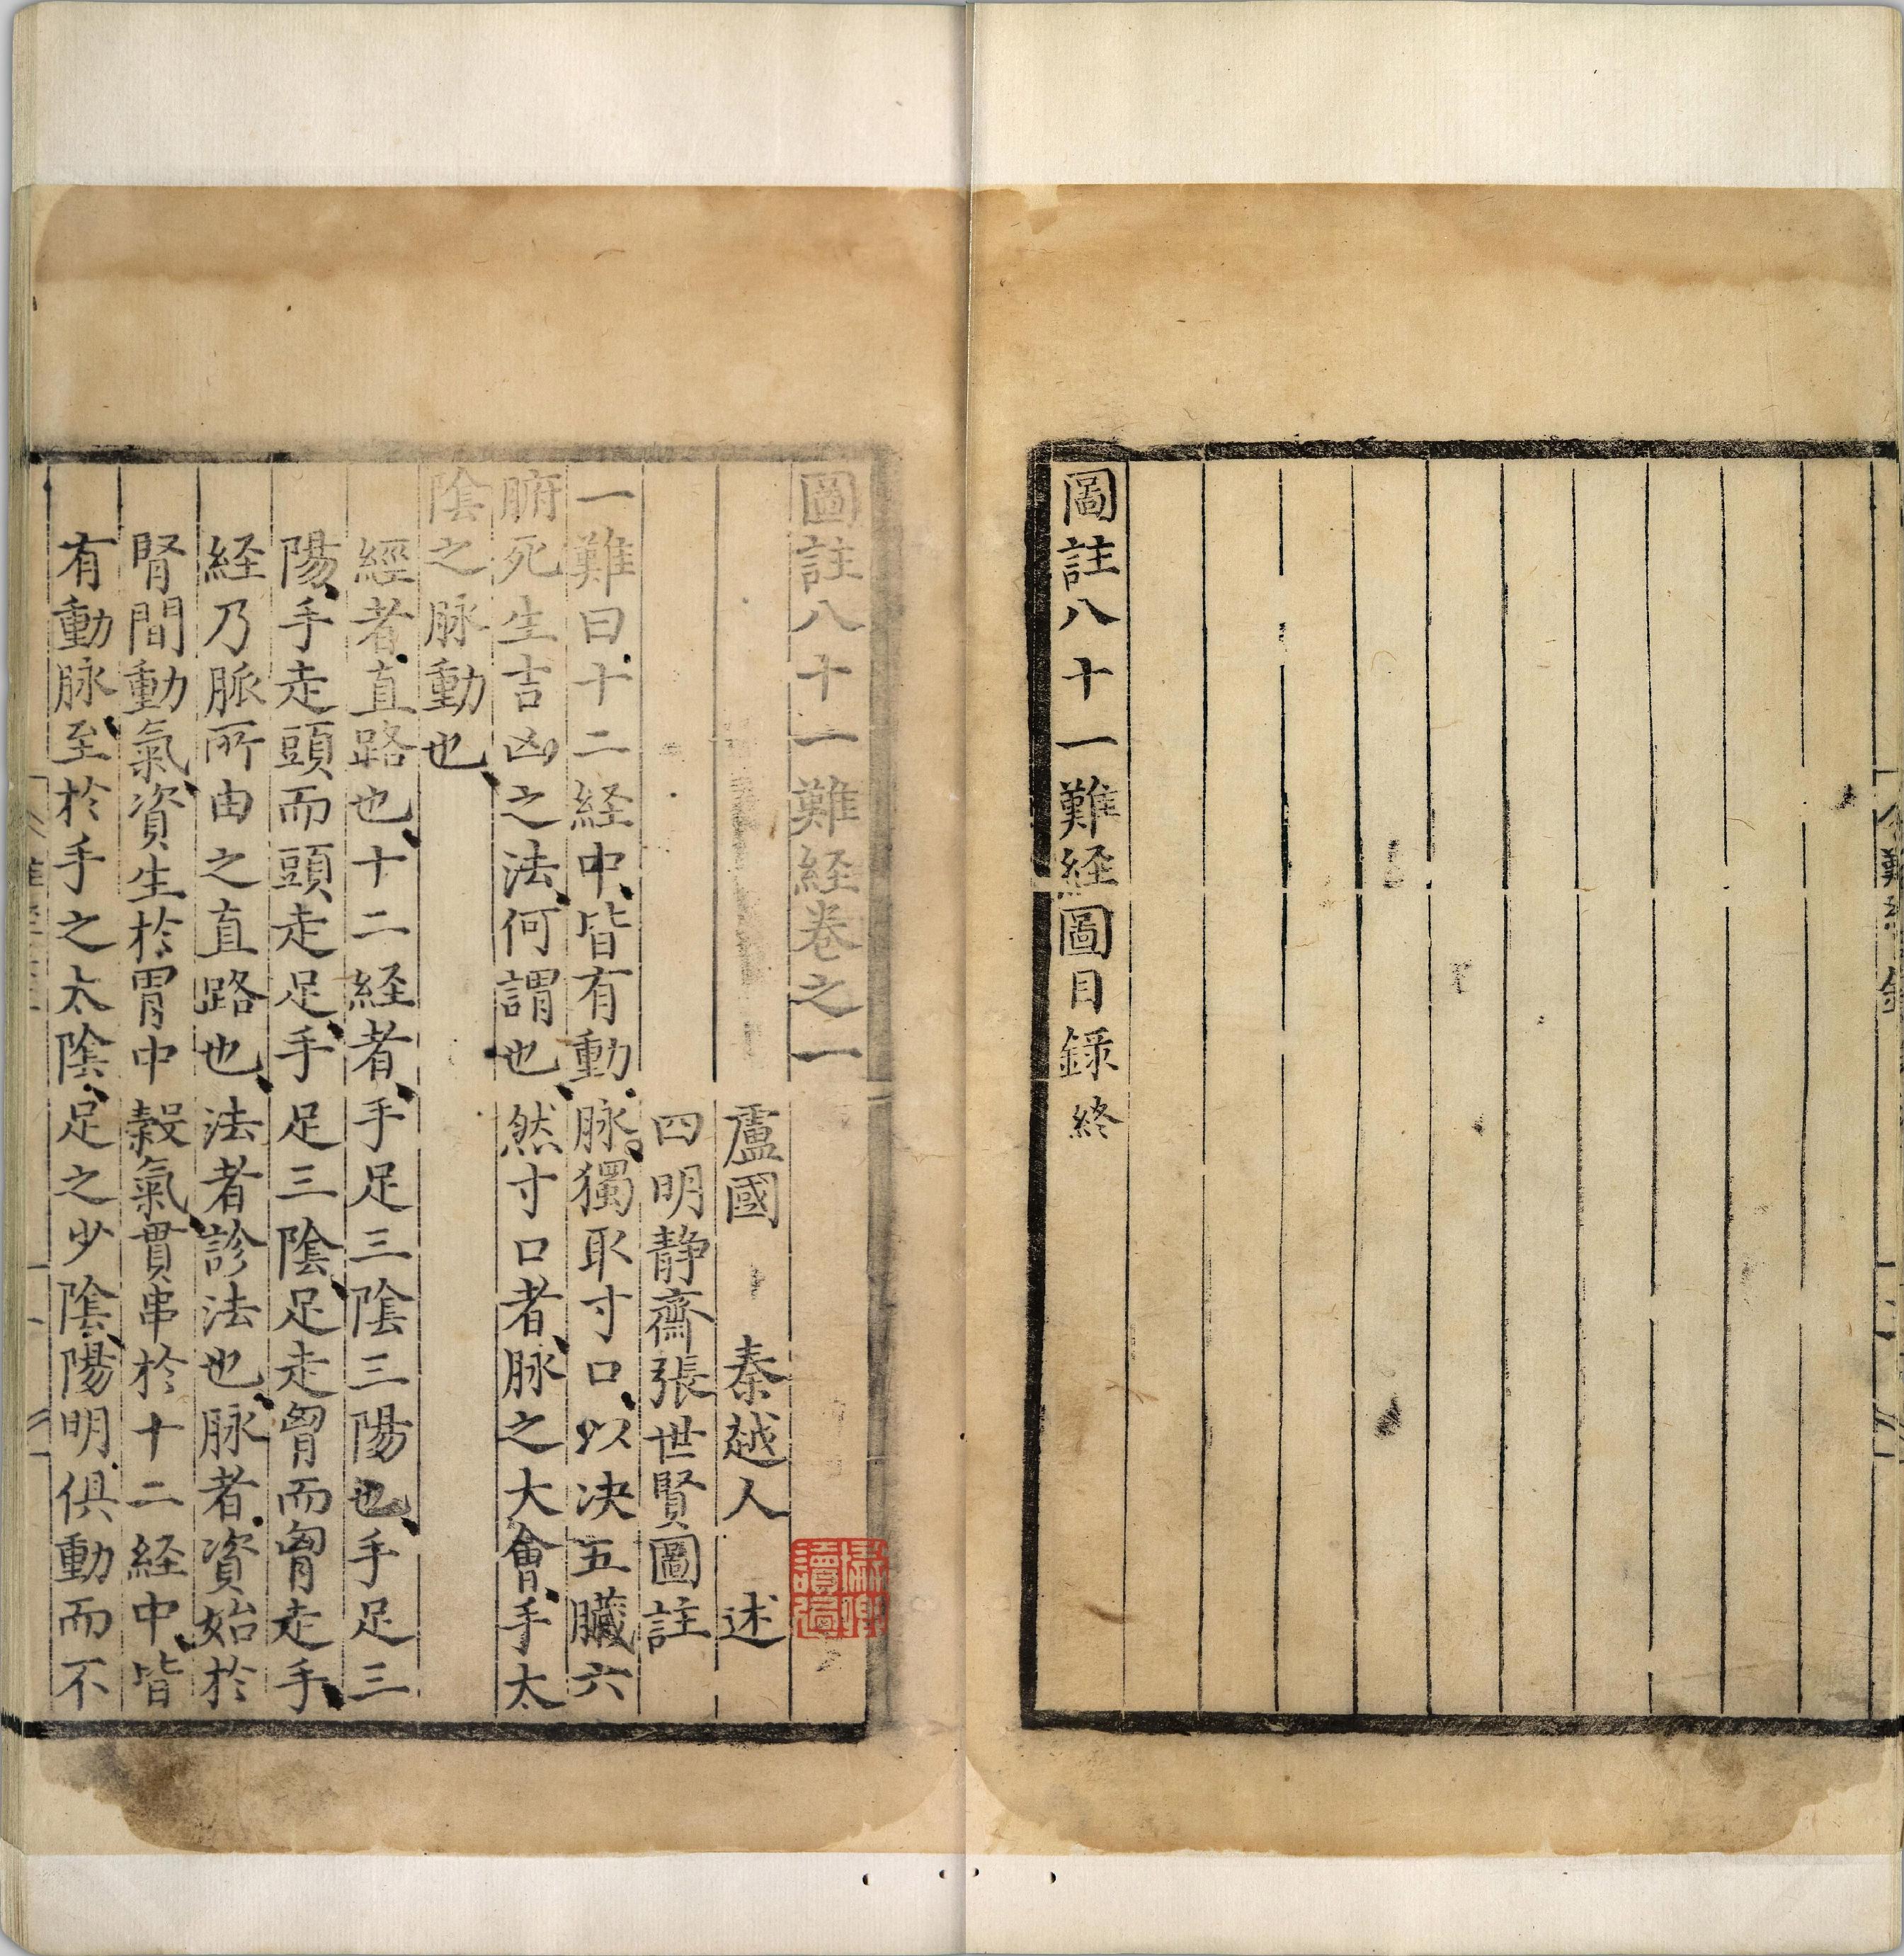 圖註八十一難経圖目録終
圖註八十一難経卷之一
盧國　秦越人　述
四明静齋張世賢圖註
一難曰十二経中皆有動脉獨取寸口以决五臓六
腑死生吉凶之法何謂也然寸口者脉之大會手太
陰之脉動也
經者直路也十二経者手足三陰三陽也手足三
陽手走頭而頭走足手足三陰足走胷而胷走手
経乃脈所由之直路也法者診法也脉者資始於
腎間動氣資生於胃中穀氣貫串於十二経中皆
有動脉至於手之太陰足之少陰陽明俱動而不